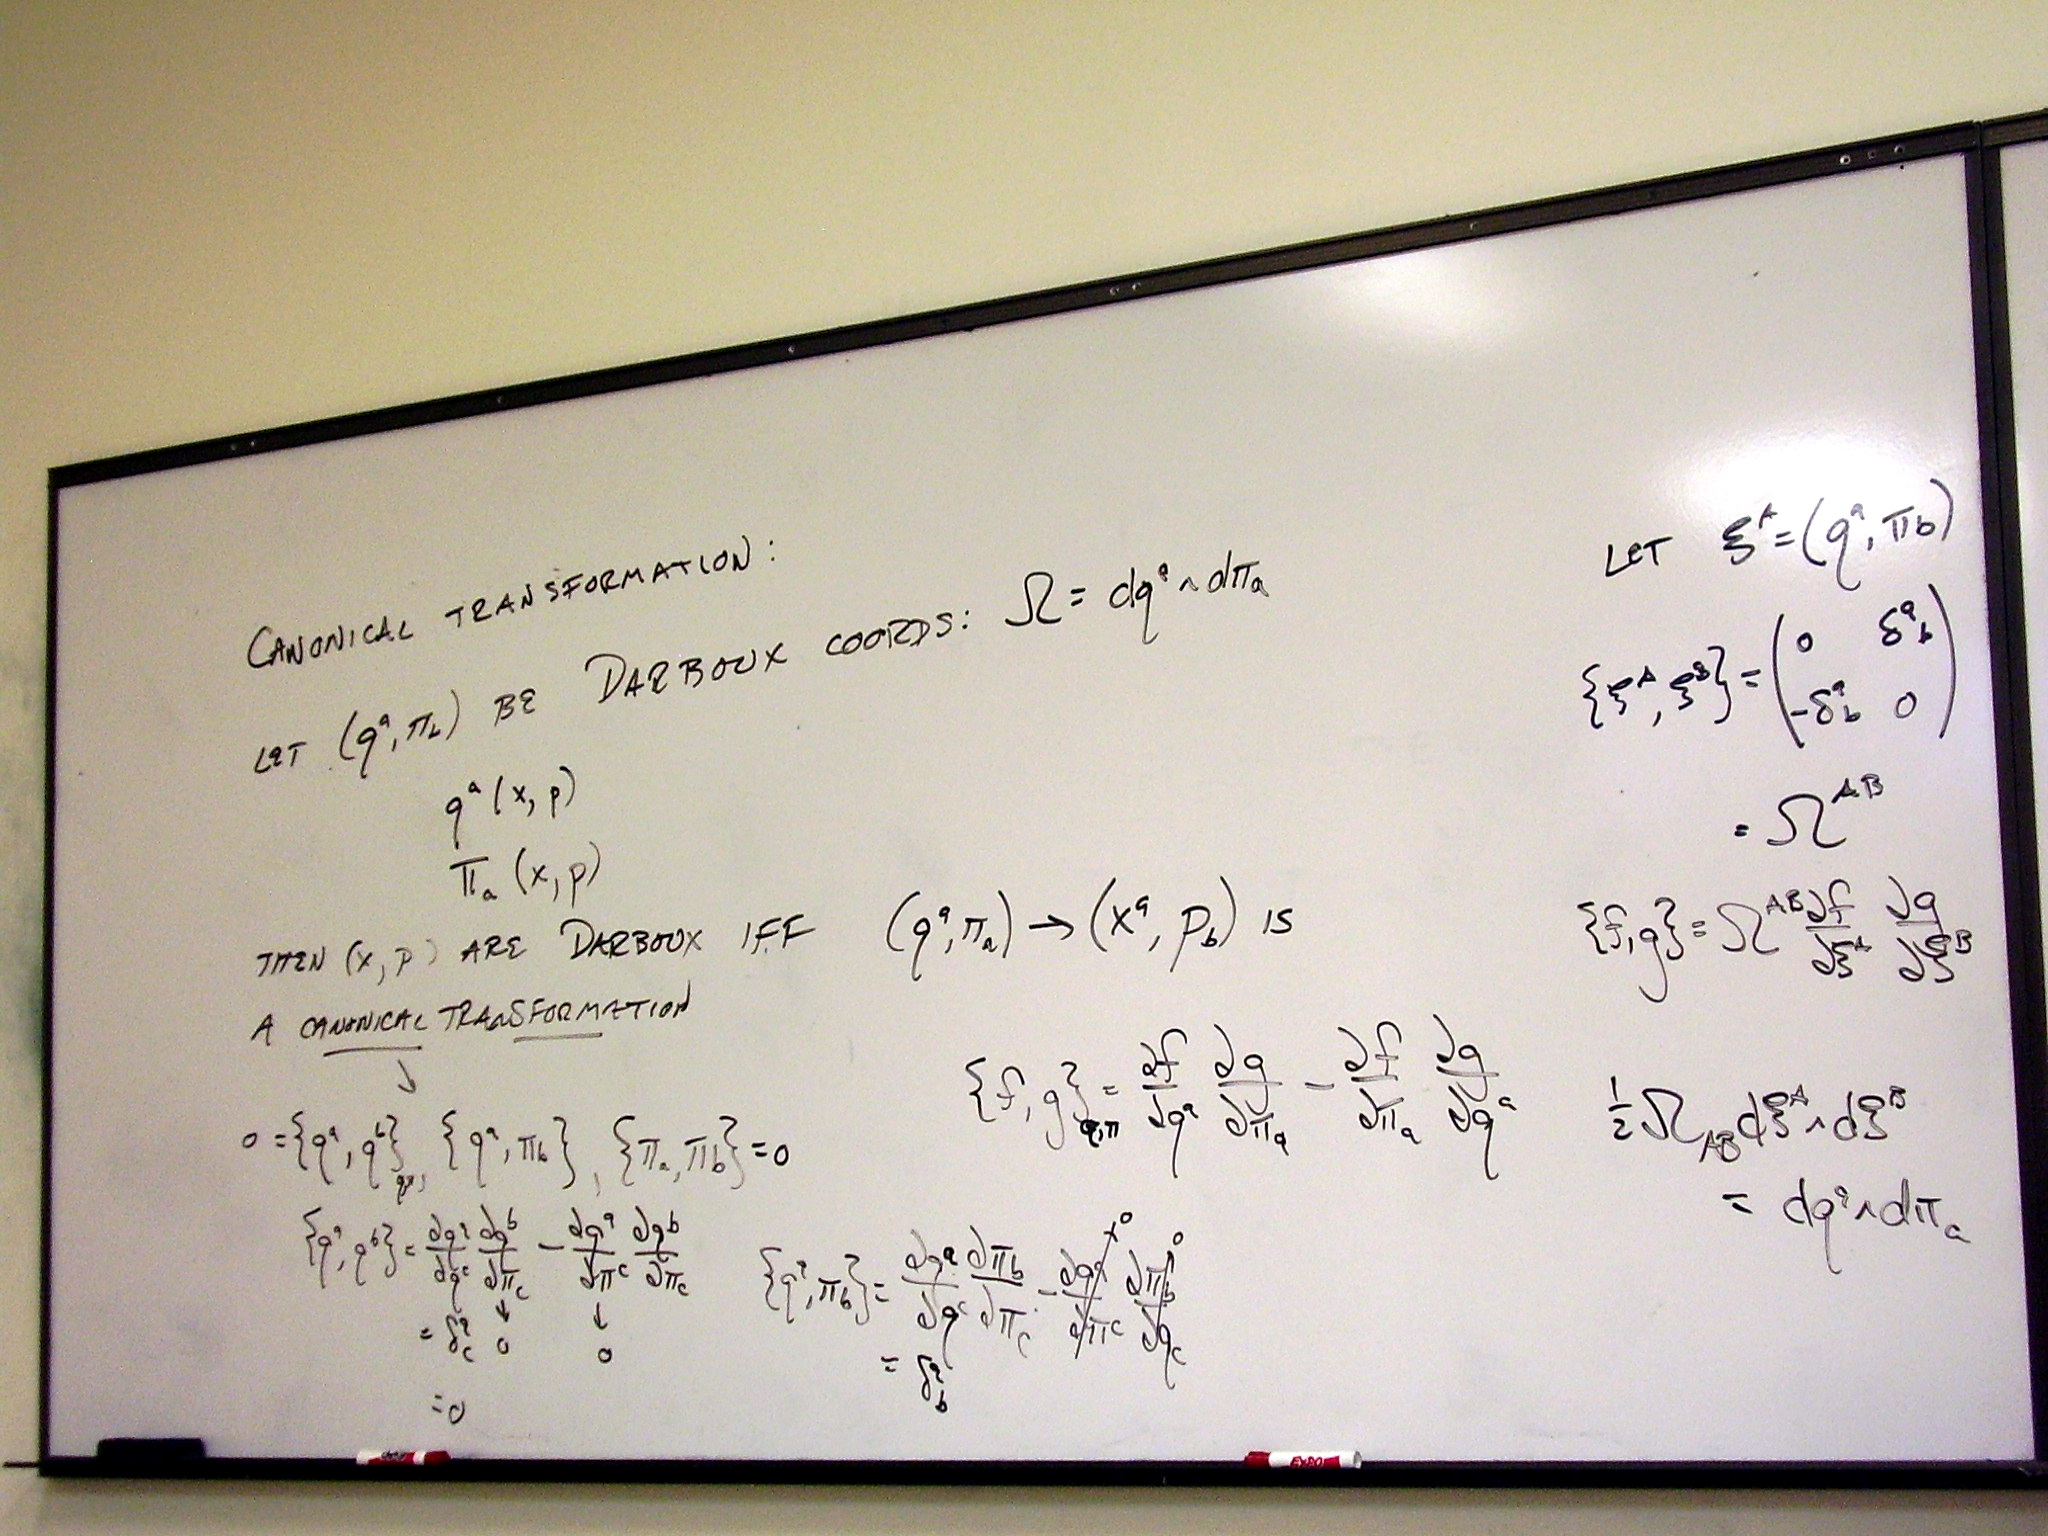 CANONICAL TRANSFORMATION:
LET (qᵃ, π_b) BE DARBOUX COORDS: Ω = dqᵃ ∧ dπₐ
qᵃ (x, p)
πₐ (x, p)
THEN (x, p) ARE DARBOUX IFF (qᵃ, πₐ) → (xᵃ, p_b) IS
A CANONICAL TRANSFORMATION
↓
0 = {qᵃ, qᵇ}, {qᵃ, π_b}, {πₐ, π_b} = 0
{qᵃ, qᵇ} = ∂qᵃ/∂qᶜ ∂qᵇ/∂π_c − ∂qᵃ/∂πᶜ ∂qᵇ/∂π_c
↓ ↓
= δᵃ_c 0 0
= 0
{f, g}_{q,π} = ∂f/∂qᵃ ∂g/∂πₐ − ∂f/∂πₐ ∂g/∂qᵃ
{qᵃ, π_b} = ∂qᵃ/∂qᶜ ∂π_b/∂π_c − ∂qᵃ/∂πᶜ 0 ∂π_b/∂q_c 0
= δᵃ_b
LET ξᴬ = (qᵃ, π_b)
{ξᴬ, ξᴮ} = (0 δᵃ_b
−δᵃ_b 0)
= Ωᴬᴮ
{f, g} = Ωᴬᴮ ∂f/∂ξᴬ ∂g/∂ξᴮ
½ Ω_AB dξᴬ ∧ dξᴮ
= dqᵃ ∧ dπₐ
EXPO